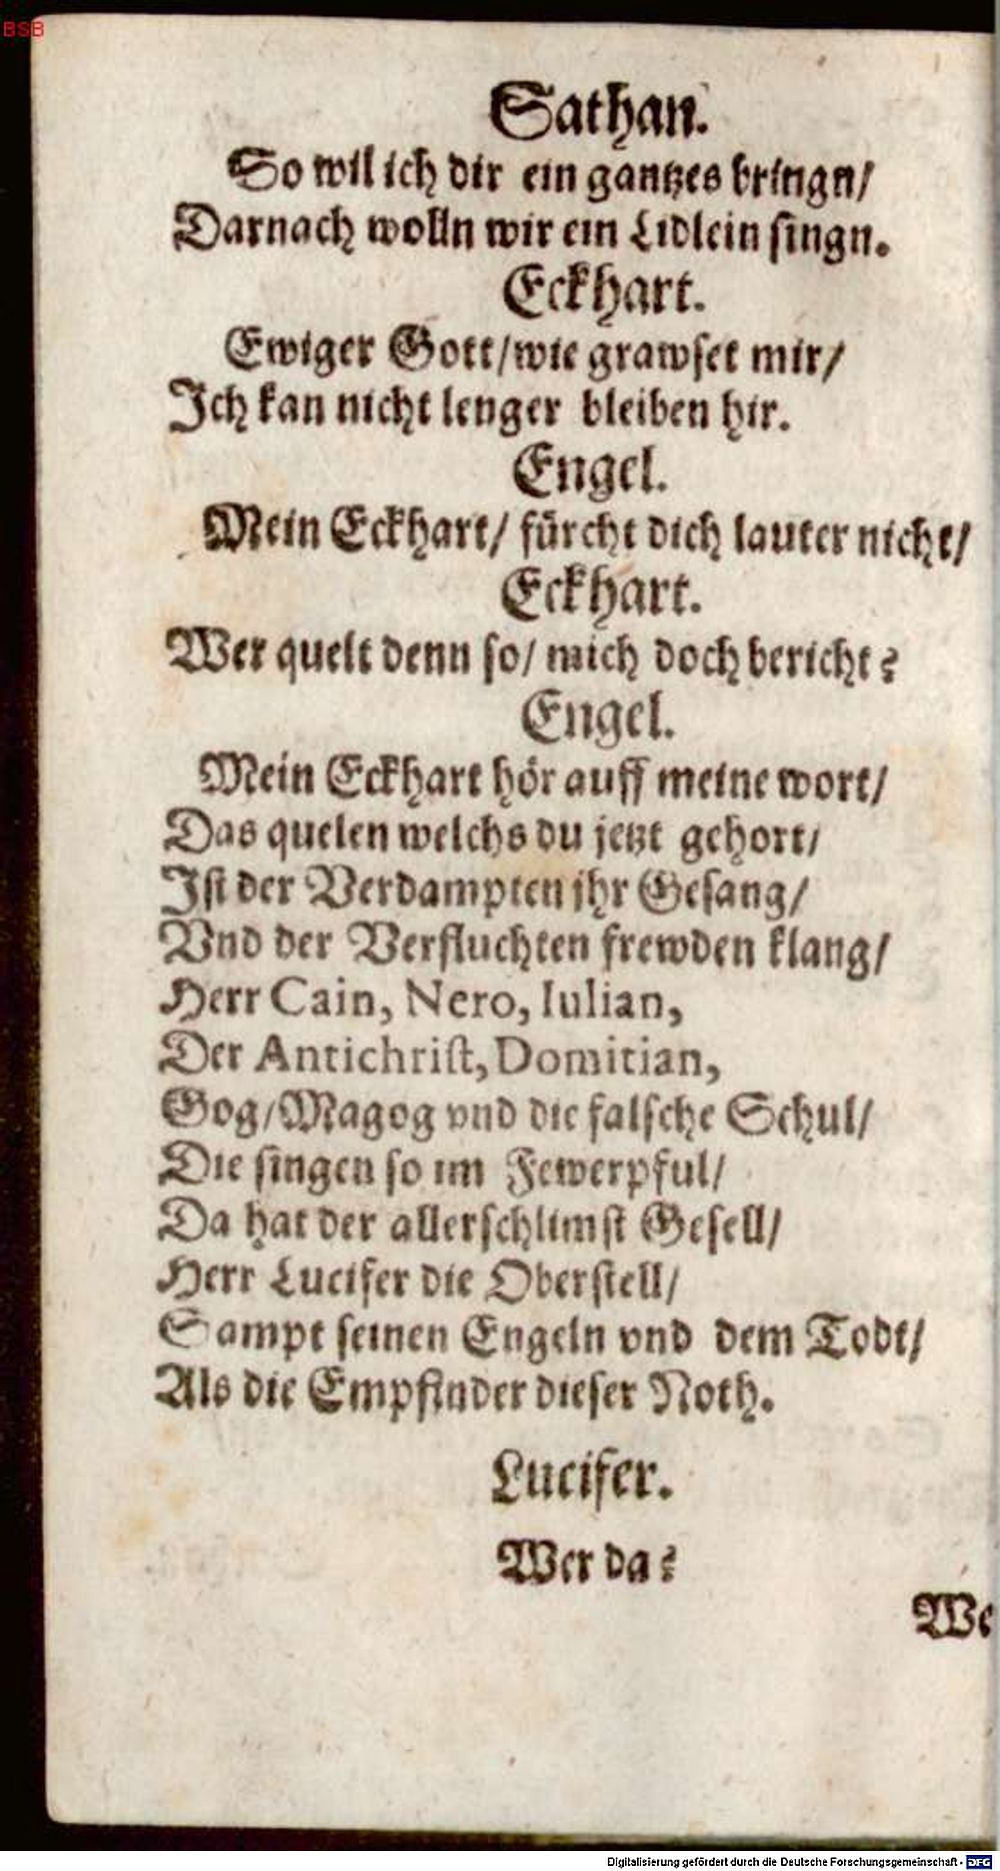 BSB
Sathan.
So wil ich dir ein gantzes bringn/
Darnach wolln wir ein Lidlein singn.
Eckhart.
Ewiger Gott/wie grawset mir/
Ich kan nicht lenger bleiben hir.
Engel.
Mein Eckhart/ fürcht dich lauter nicht/
Eckhart.
Wer quelt denn so/ mich doch bericht?
Engel.
Mein Eckhart hör auff meine wort/
Das quelen welchs du jetzt gehort/
Ist der Verdampten jhr Gesang/
Vnd der Verfluchten frewden klang/
Herr Cain, Nero, Iulian,
Der Antichrist, Domitian,
Gog/Magog vnd die falsche Schul/
Die singen so im Fewerpful/
Da hat der allerschlimst Gesell/
Herr Lucifer die Oberstell/
Sampt seinen Engeln vnd dem Todt/
Als die Empfinder dieser Noth.
Lucifer.
Wer da?
We
Digitalisierung gefördert durch die Deutsche Forschungsgemeinschaft - DFG